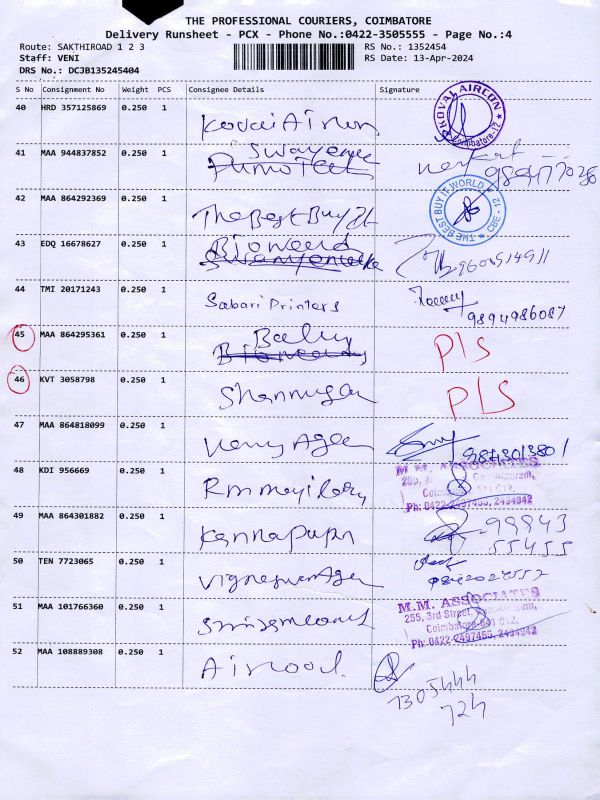 THE PROFESSIONAL COURIERS, COIMBATORE
Delivery Runsheet - PCX - Phone No.:0422-3505555 - Page No.:4
Route: SAKTHIROAD 1 2 3 RS No.: 1352454
Staff: VENI RS Date: 13-Apr-2024
DRS No.: DCJB135245404
S No Consignment No Weight PCS Consignee Details Signature
40 HRD 357125869 0.250 1 Kovai Aircon
KOVAI AIRCON
Coimbatore-12
41 MAA 944837852 0.250 1
42 MAA 864292369 0.250 1 The Best Buy It
THE BEST BUY IT WORLD CBE - 12
43 EDQ 16678627 0.250 1 Bioneeds 9600514911
44 TMI 20171243 0.250 1 Sabari Printers
9894986087
45 MAA 864295361 0.250 1 Balu P/S
Bioneeds
46 KVT 3058798 0.250 1 Shanmugan P/S
47 MAA 864818099 0.250 1
48 KDI 956669 0.250 1
M.M. ASSOCIATES
Ph: 0422-2497455, 2494942
49 MAA 864301882 0.250 1 Kannapupn 99943
55455
50 TEN 7723065 0.250 1 Vigneswar Agen
51 MAA 101766360 0.250 1
M.M. ASSOCIATES
255, 3rd Street,
Coimbatore-641 012.
Ph: 0422-2497455, 2494942
52 MAA 108889308 0.250 1 Aircool
7305444
724